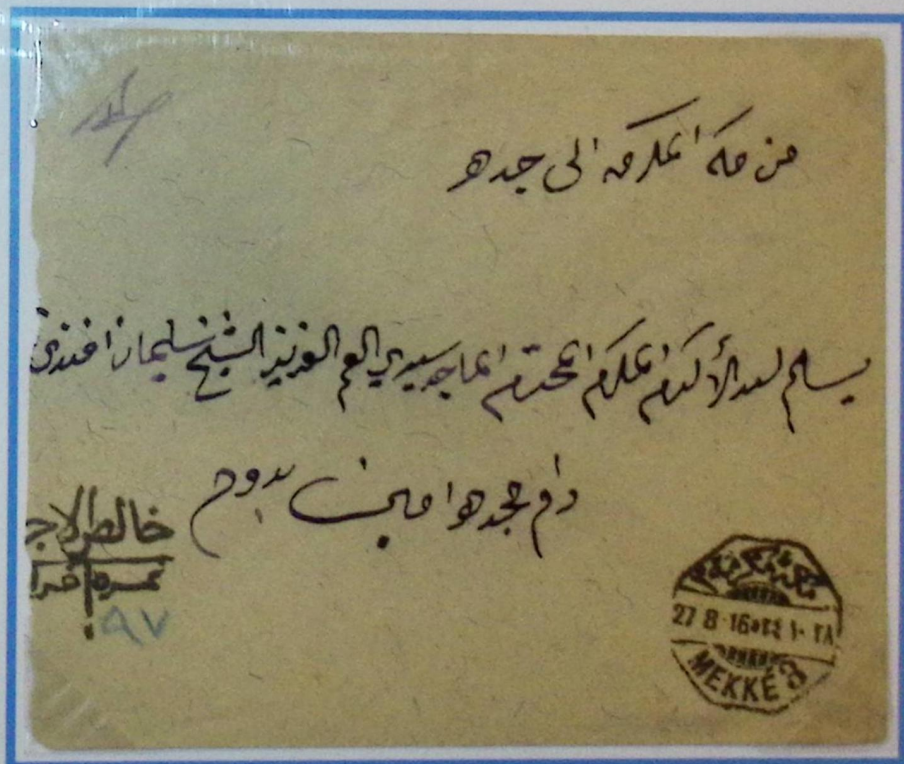 من مكه المكرمه الى جده
يسلم ليد الأكرم المكرم المحترم الماجد سيدي العم العزيز الشيخ سليمان افندي
دام مجده امين بدوح
خالص الاجر
نمره
٩٧
مكة مكرمة
27 8 16 ٣٤ ١٠ ٢٨
MEKKÉ